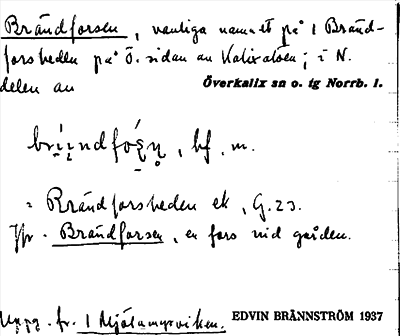 Brändforsen, vanliga namnet på 1 Bränd-
forsheden på ö. sidan av Kalixälven; i N.
delen av Överkalix sn o. tg Norrb. l.
bf. m.
= Brändforsheden ek, G.23.
Jfr. Brändforsen, en fors vid gården.
Uppg. fr. 1 Mjölamyrviken. EDVIN BRÄNNSTRÖM 1937